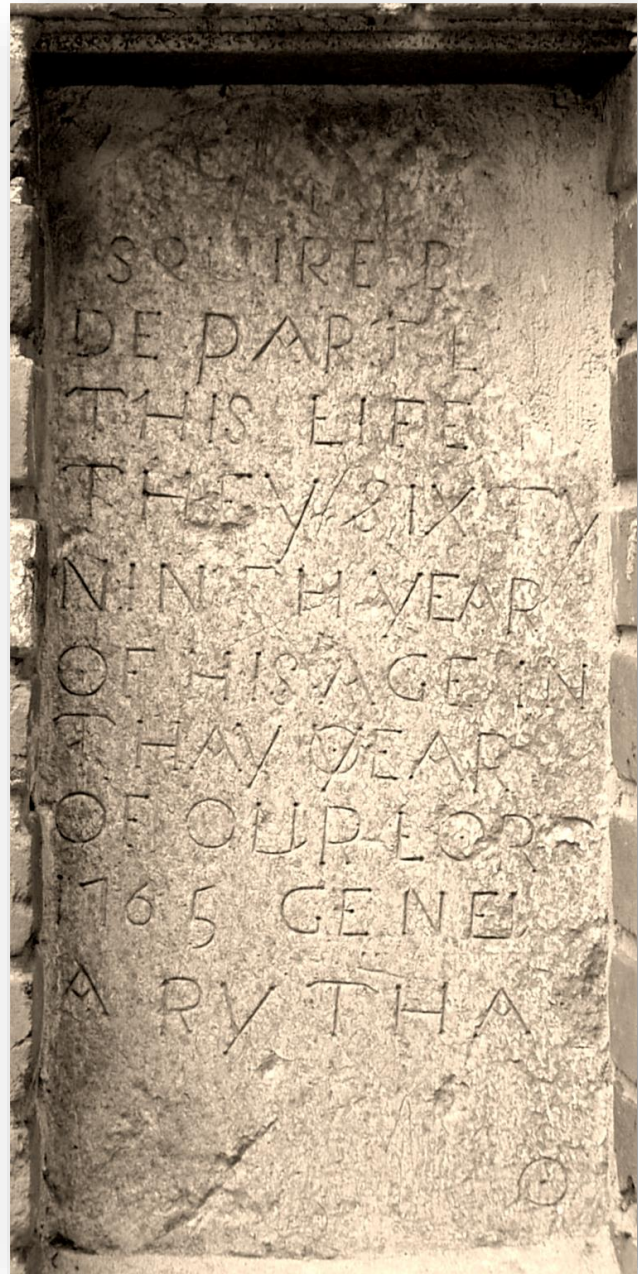 SQUIRE B
DEPARTE
THIS LIFE
THEY SIXTY
NINTH YEAR
OF HIS AGE IN
THAY YEAR
OF OUR LORD
1765 GENE
A RY THA